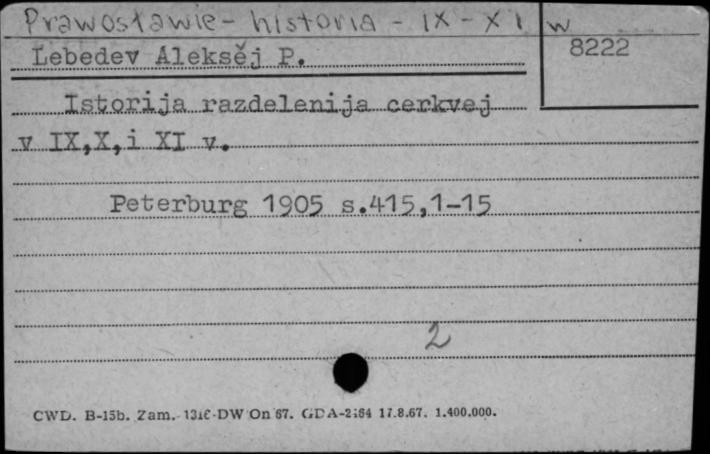 Prawosławie - historia - IX - XI
w
8222
Lebedev Aleksěj P.
Istorija razdelenija cerkvej
v IX,X,i XI v.
Peterburg 1905 s.415,1-15
2
CWD. B-15b. Zam. 1316-DW On 67. GDA-2164 17.8.67. 1.400.000.